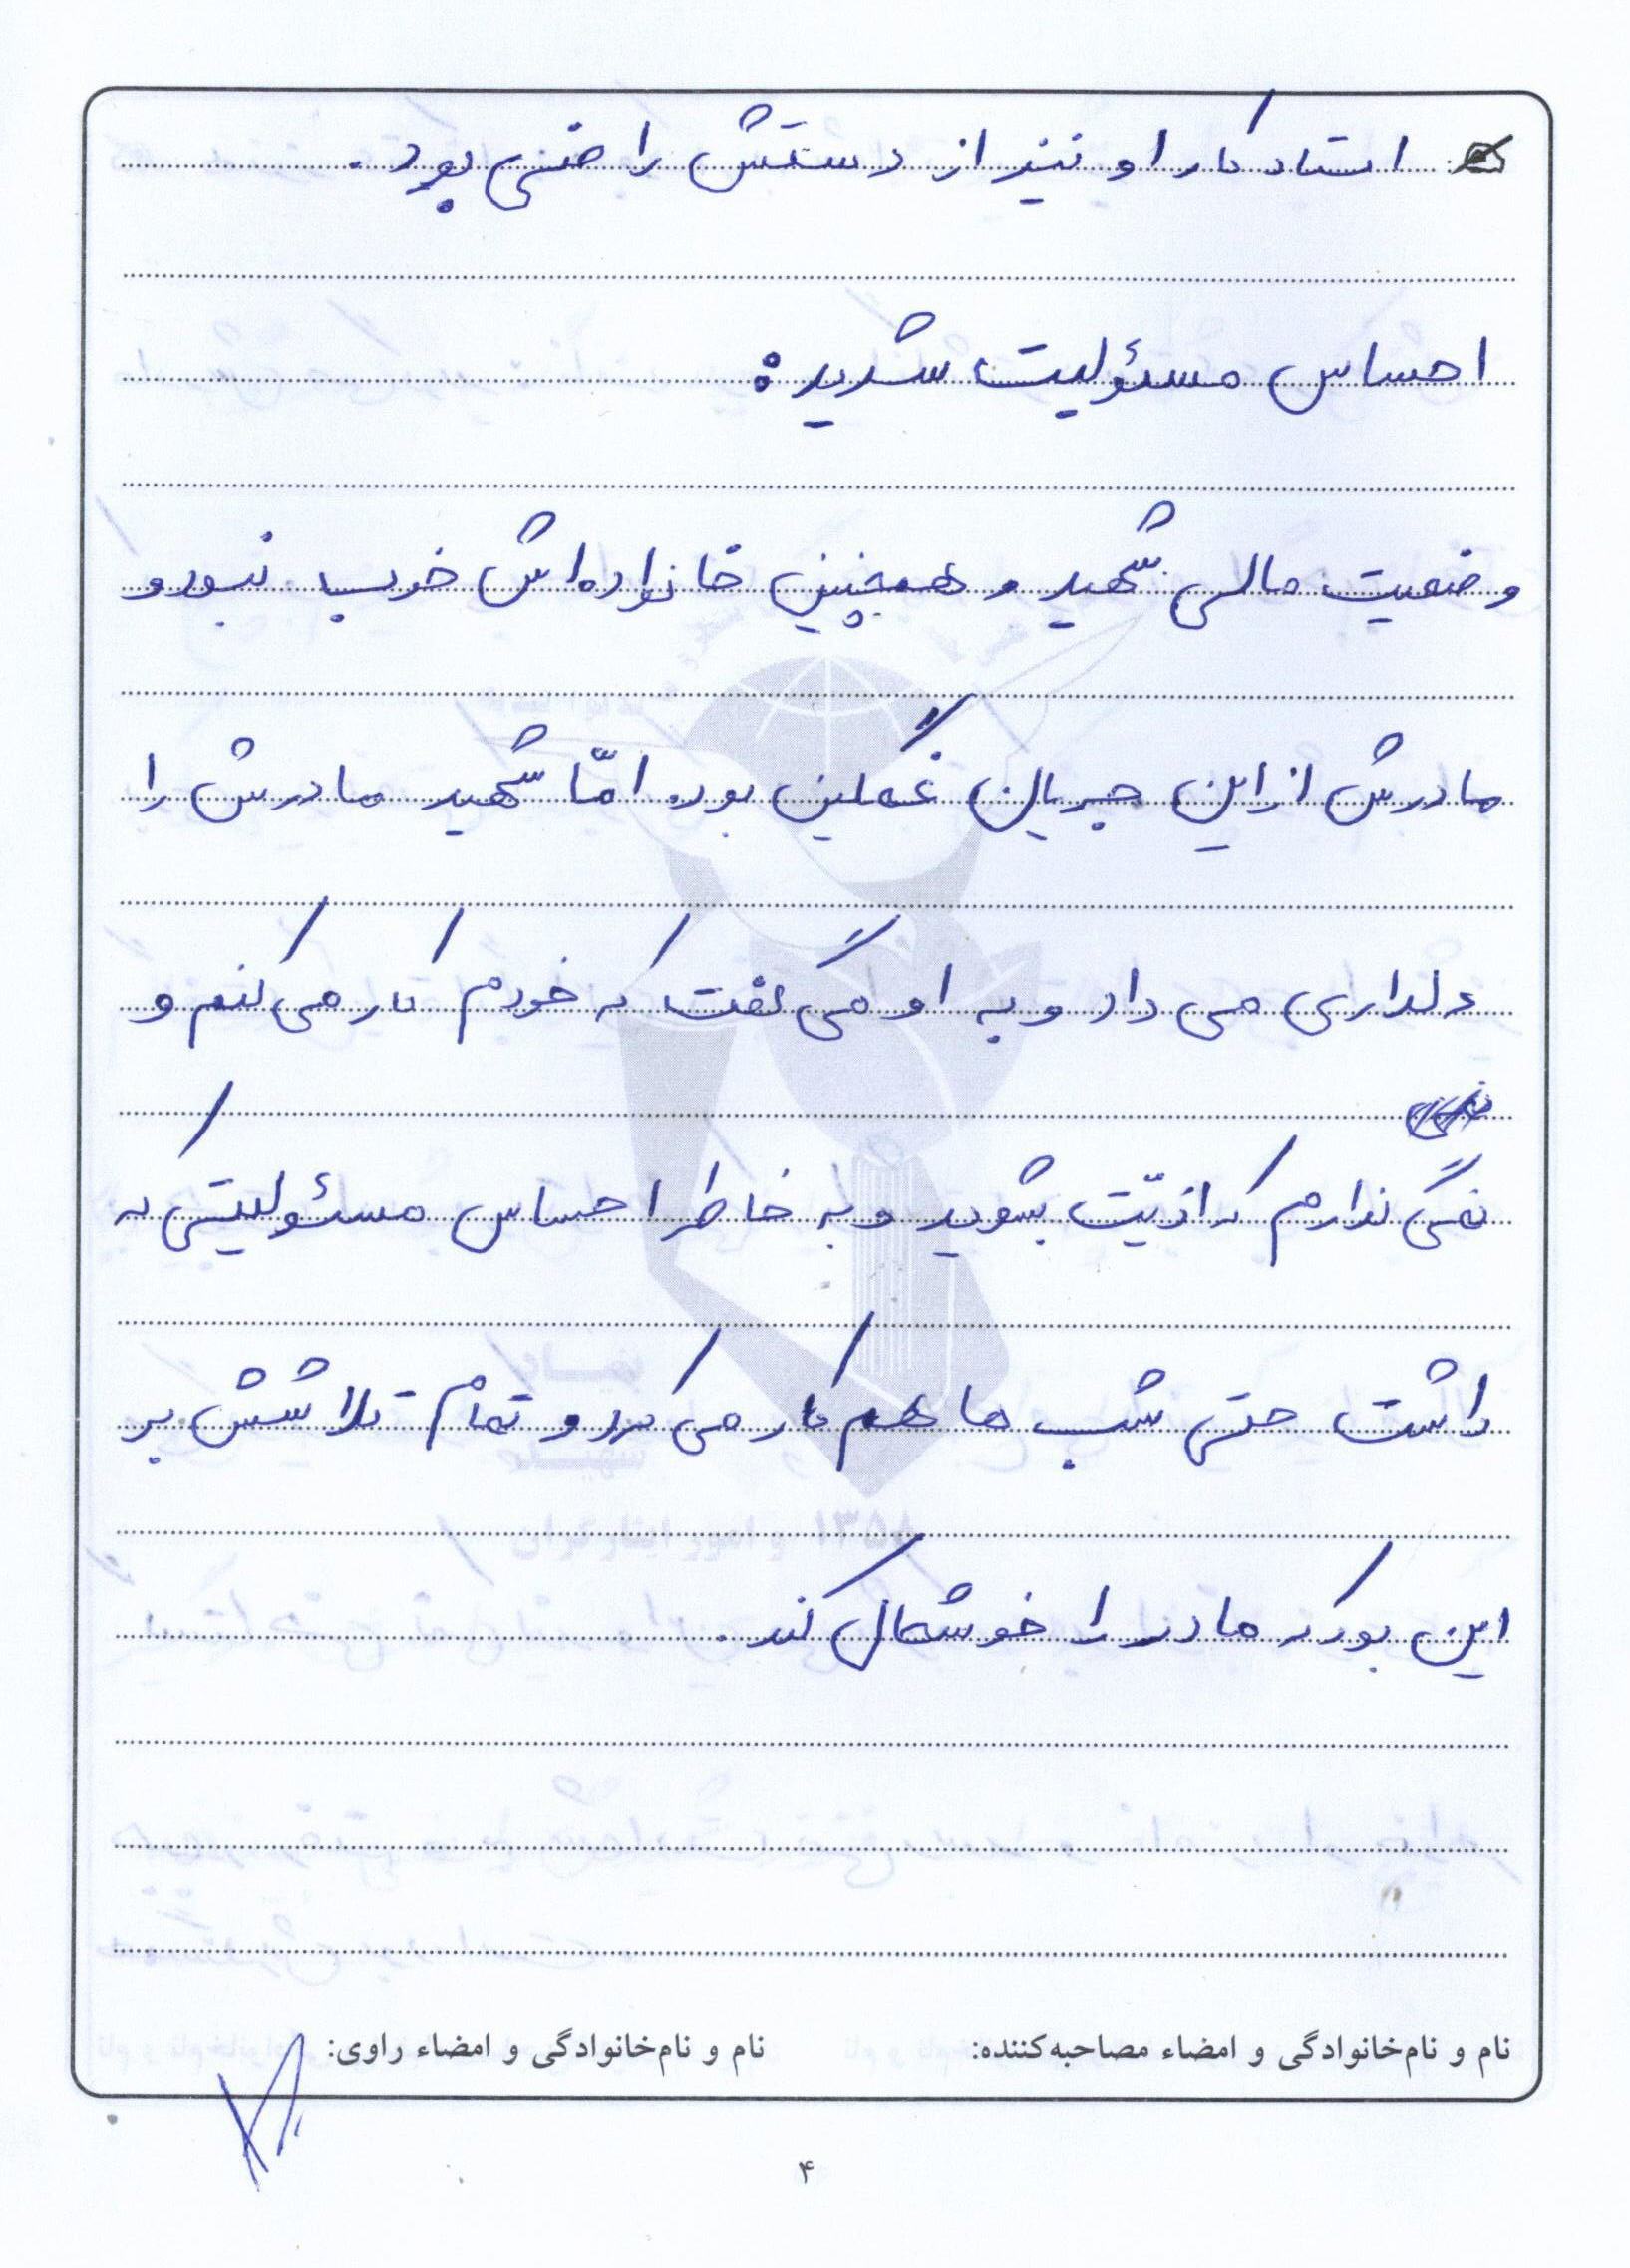 استاد کار او نیز از دستش راضی بود.
احساس مسئولیت شدید:
وضعیت مالی شهید و همچنین خانواده‌اش خوب نبود و
مادرش از این جریان غمگین بود. امّا شهید مادرش را
دلداری می داد و به او می گفت که خودم کار می کنم و
نمی گذارم که اذیّت بشوید و به خاطر احساس مسئولیتی که
داشت حتی شب ها هم کار می کرد و تمام تلاشش بر
این بود که مادر را خوشحال کند.
نام و نام‌خانوادگی و امضاء مصاحبه‌کننده: نام و نام‌خانوادگی و امضاء راوی:
۴